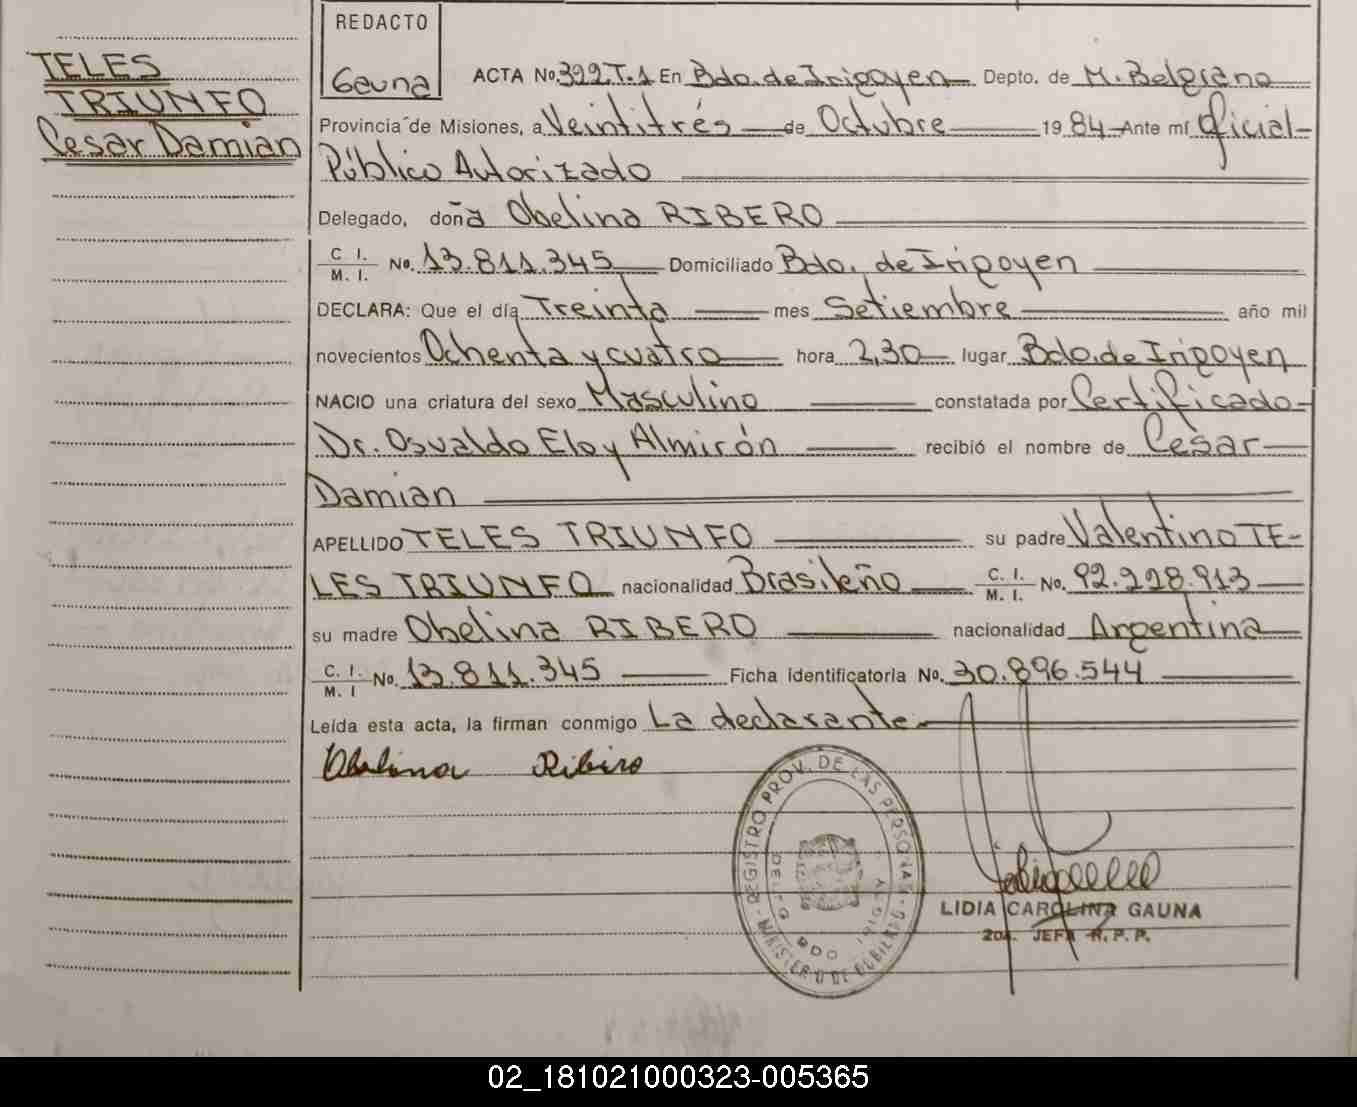 REDACTO
Gauna
TELES
TRIUNFO
Cesar Damian
ACTA No. 392.T.1 En Bdo. de Irigoyen Depto. de M. Belgrano
Provincia de Misiones, a Veintitrés de Octubre 19 84 Ante mí Oficial
Público Autorizado
Delegado, doña Obelina RIBERO
C. I.
M. I. No. 13.811.345 Domiciliado Bdo. de Irigoyen
DECLARA: Que el día Treinta mes Setiembre año mil
novecientos Ochenta y cuatro hora 2,30 lugar Bdo. de Irigoyen
NACIO una criatura del sexo Masculino constatada por Certificado
Dr. Osvaldo Eloy Almirón recibió el nombre de Cesar
Damian
APELLIDO TELES TRIUNFO su padre Valentino TE-
LES TRIUNFO nacionalidad Brasileño C. I.
M. I. No. 92.228.913
su madre Obelina RIBERO nacionalidad Argentina
C. I.
M. I No. 13.811.345 Ficha identificatoria No. 30.896.544
Leída esta acta, la firman conmigo La declarante.
Obelina Ribero
REGISTRO PROV. DE LAS PERSONAS
MINISTERIO DE GOBIERNO
DELEG. BDO IRIGOY.
LIDIA CAROLINA GAUNA
2da. JEFA R. P. P.
02_181021000323-005365